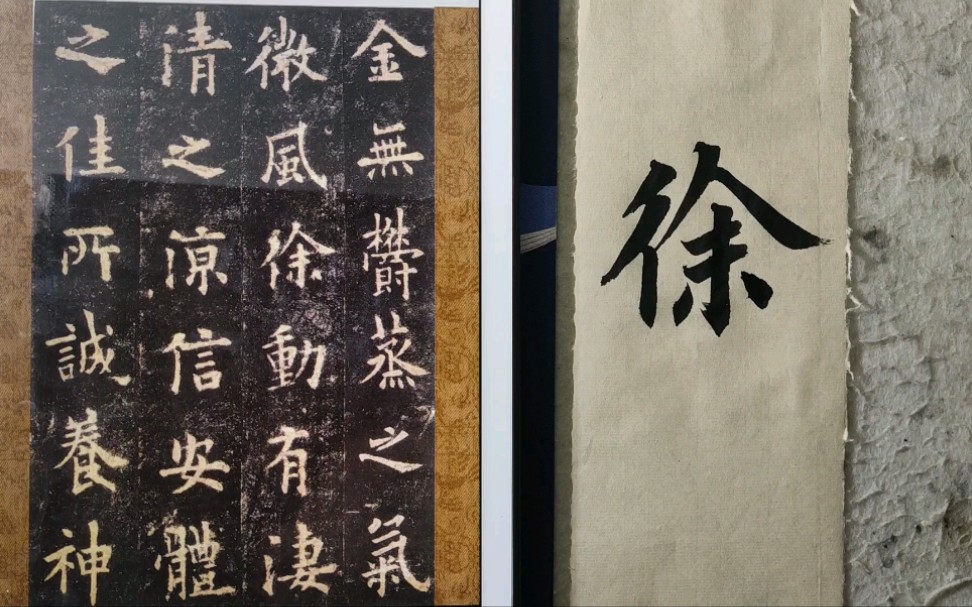 金無欝蒸之氣
微風徐動有淒
清之涼信安體
之佳所誠養神
徐